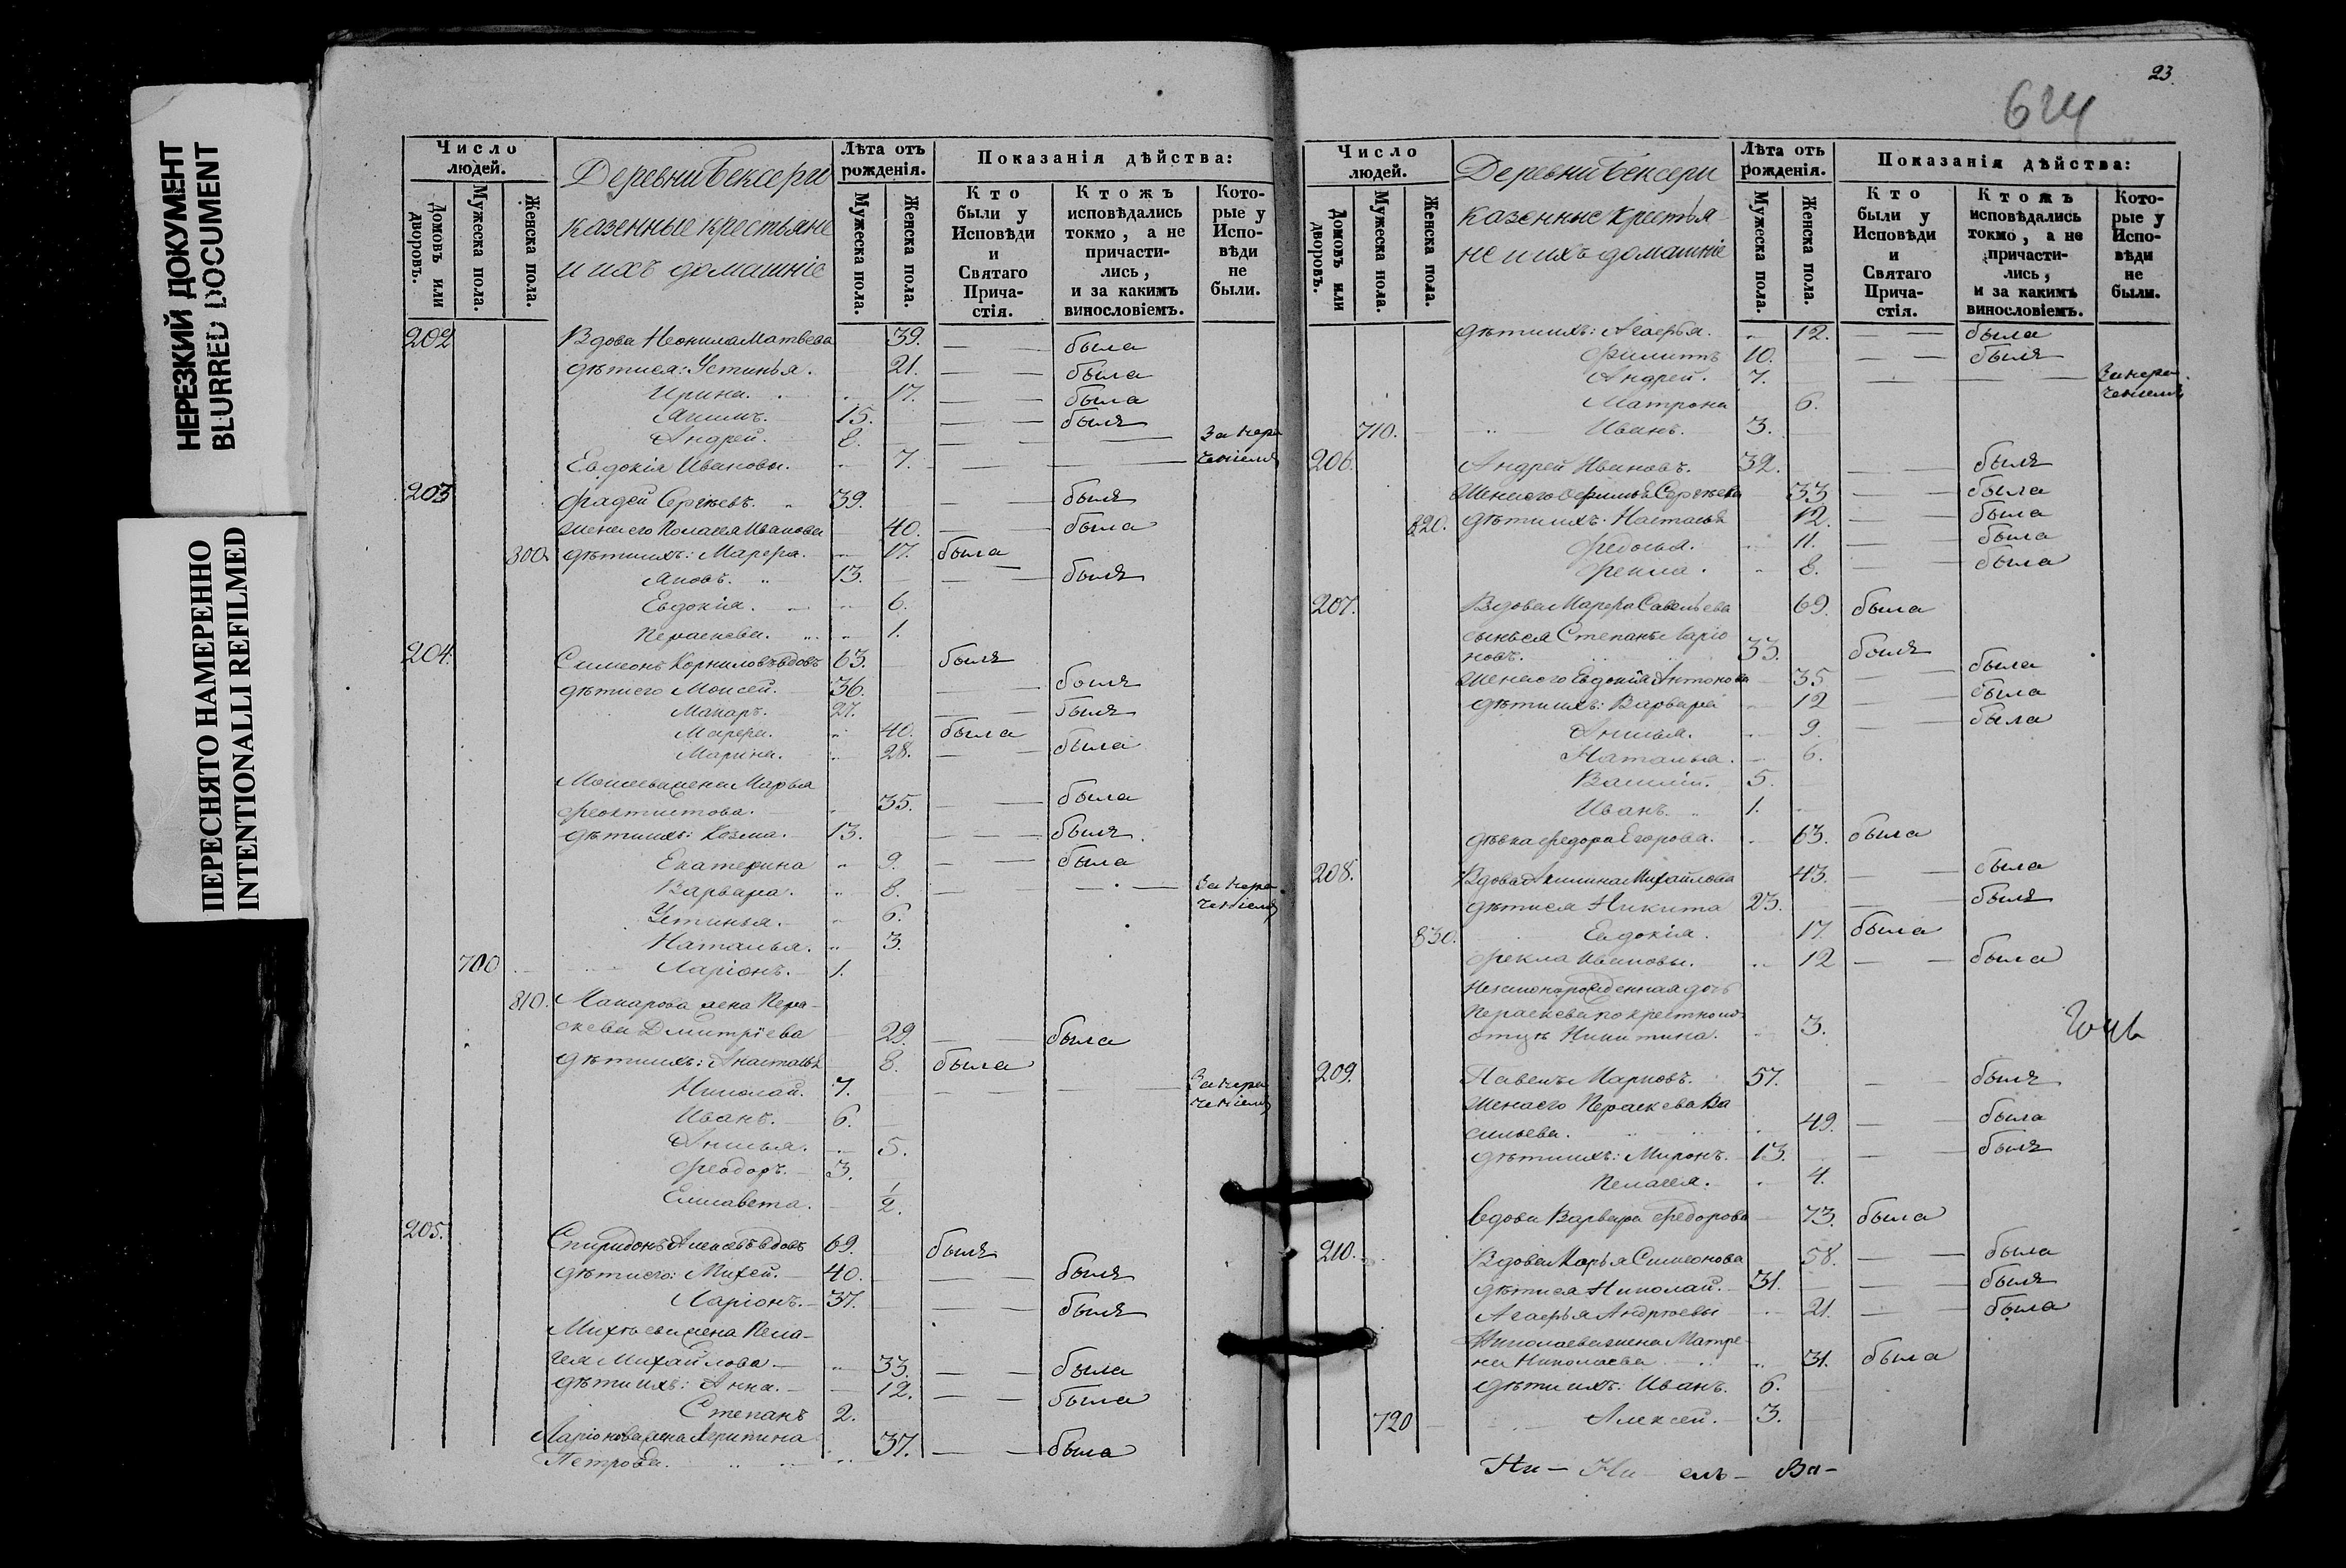 НЕРЕЗКИЙ ДОКУМЕНТ
BLURRED DOCUMENT
ПЕРЕСНЯТО НАМЕРЕННО
INTENTIONALLI REFILMED
Число людей.
Домовъ или дворовъ.
Мужеска пола.
Женска пола.
Деревни Бексери
казенные крестьяне
и ихъ домашніе
Лѣта отъ рожденія.
Мужеска пола.
Женска пола.
Показанія дѣйства:
Кто были у Исповѣди и Святаго Прича- стія.
Ктожъ исповѣдались токмо, а не причасти- лись, и за какимъ винословіемъ.
Кото- рые у Испо- вѣди не были.
202 Вдова Неонила Матвева 39. была
дѣти ея: Устинья. 21. была
Ирина. 17. была
Акимъ. 15. былъ
Андрей. 8. За нера
Евдокія Ивановы. 7. ченіемъ
203 Фадей Сергѣевъ. 39. былъ
Жена его Пелагея Иванова 40. была
800. дѣти ихъ: Марфа. 17. была
Яковъ. 13. былъ
Евдокія. 6.
Параскева. 1.
204. Симеонъ Корниловъ вдовъ 63. былъ
дѣти его Моисей. 36. былъ
Макаръ. 27. былъ
Марфа. 40. была
Марина. 28. была
Моисеева жена Марья
Феоктистова. 35. была
дѣти ихъ: Козма. 13. былъ
Екатерина 9. была
Варвара. 8. За нера
ченіемъ
Устинья. 6.
Наталья. 3.
700 Ларіонъ. 1.
810. Макарова жена Пера-
скева Дмитріева 29. была
дѣти ихъ: Анастасья 8. была
Николай. 7. За нера
ченіемъ
Иванъ. 6.
Анисья. 5.
Феодоръ. 3.
Елисавета. 1/2.
205. Спиридонъ Алексѣевъ вдовъ 69. былъ
дѣти его: Михей. 40. былъ
Ларіонъ. 37. былъ
Михѣева жена Пела-
гея Михайлова 33. была
дѣти ихъ: Анна. 12. была
Степанъ 2.
Ларіонова жена Агрипина 37. была
Петрова.
23.
624
Число людей.
Домовъ или дворовъ.
Мужеска пола.
Женска пола.
Деревни Бексери
казенные крестья-
не и ихъ домашніе
Лѣта отъ рожденія.
Мужеска пола.
Женска пола.
Показанія дѣйства:
Кто были у Исповѣди и Святаго Прича- стія.
Ктожъ исповѣдались токмо, а не причасти- лись, и за какимъ винословіемъ.
Кото- рые у Испо- вѣди не были.
дѣти ихъ: Агафья. 12. была
Филиппъ 10. былъ
Андрей. 7. За нера
ченіемъ
Матрона 6.
710. Иванъ. 3.
206. Андрей Ивановъ. 32. былъ
Жена его Сергѣева 33 была
820. дѣти ихъ: Настасья 12. была
Федосья. 11. была
Фекла. 8. была
207. Вдова Марфа Савельева 69. была
сынъ ея Степанъ Ларіо
новъ. 33. былъ
Жена его Евдокія Антонова 35 была
дѣти ихъ: Варвара 12 была
Анисья. 9. была
Наталья. 6.
Василій. 5.
Иванъ. 1.
дѣвка Федора Егорова. 63. была
208. Вдова Акилина Михайлова 43. была
дѣти ея Никита 23. былъ
830. Евдокія. 17 была
Фекла Ивановы. 12 была
Незаконорожденная дочь
Параскева по крестному
отцу Никитина. 3.
209. Павелъ Марковъ. 57. былъ
Жена его Пераскева Ва
сильева. 49. была
дѣти ихъ: Миронъ. 13. былъ
Пелагея. 4.
вдова Варвара Федорова 73. была
210. Вдова Марья Симеонова 58. была
дѣти ея Николай. 31. былъ
Агафья Андрѣевы 21. была
Николаева жена Матре-
на Николаева 31. была
дѣти ихъ: Иванъ. 6.
720 Алексей. 3.